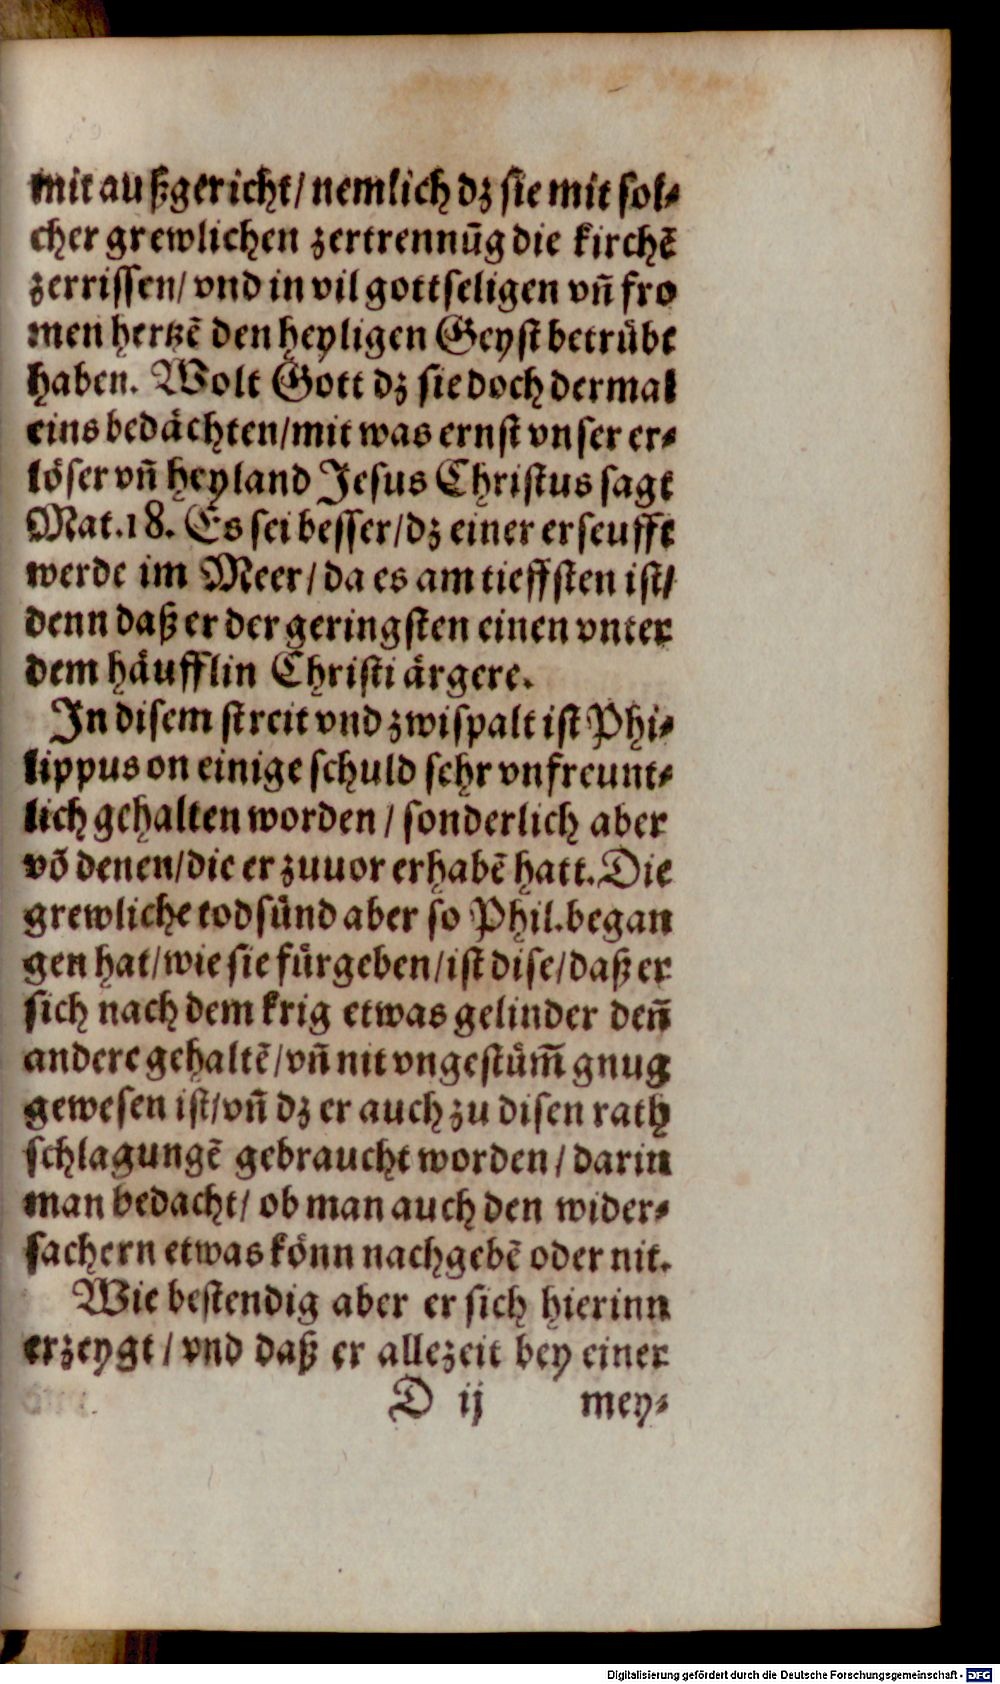 mit außgericht/ nemlich dz sie mit sol⸗
cher grewlichen zertrennūg die kirchē
zerrissen/ vnd in vil gottseligen vñ fro
men hertzē den heyligen Geyst betrübt
haben. Wolt Gott dz sie doch dermal
eins bedächten/mit was ernst vnser er⸗
löser vñ heyland Jesus Christus sagt
Mat.18. Es sei besser/dz einer erseufft
werde im Meer/ da es am tieffsten ist/
denn daß er der geringsten einen vnter
dem häufflin Christi ärgere.
In disem streit vnd zwispalt ist Phi⸗
lippus on einige schuld sehr vnfreunt⸗
lich gehalten worden / sonderlich aber
vō denen/die er zuuor erhabē hatt. Die
grewliche todsünd aber so Phil.began
gen hat/wie sie fürgeben/ist dise/daß er
sich nach dem krig etwas gelinder deñ
andere gehaltē/vñ nit vngestüm̄ gnug
gewesen ist/vñ dz er auch zu disen rath
schlagungē gebraucht worden/ darin
man bedacht/ ob man auch den wider⸗
sachern etwas könn nachgebē oder nit.
Wie bestendig aber er sich hierinn
erzeygt / vnd daß er allezeit bey einer
D ij mey⸗
Digitalisierung gefördert durch die Deutsche Forschungsgemeinschaft - DFG